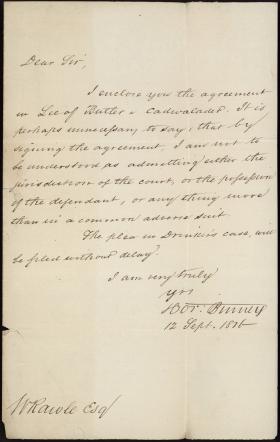 Dear Sir,
I enclose you the agreement
in Lee of Butler v Cadwalader. It is
perhaps unnecessary to say, that by
signing the agreement, I am not to
be understood as admitting either the
jurisdiction of the court, or the possession
of the defendant, or any thing more
than in a common adverse suit.
The plea in Drinker's case, will
be filed without delay.
I am very truly
yrs
Hor. Binney
12 Sept.
W Rawle Esq